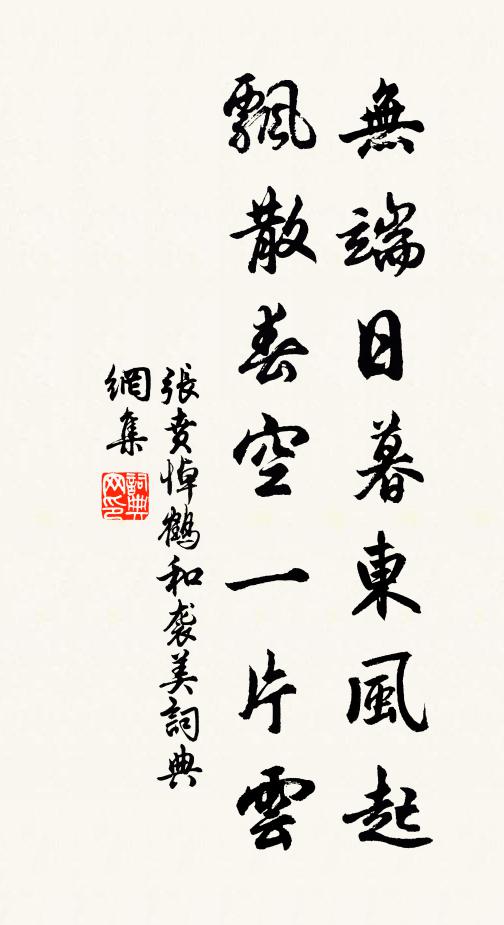 無端日暮東風起
飄散春空一片雲
張賁悼鶴和袭美詞典
網集
詞典
网印